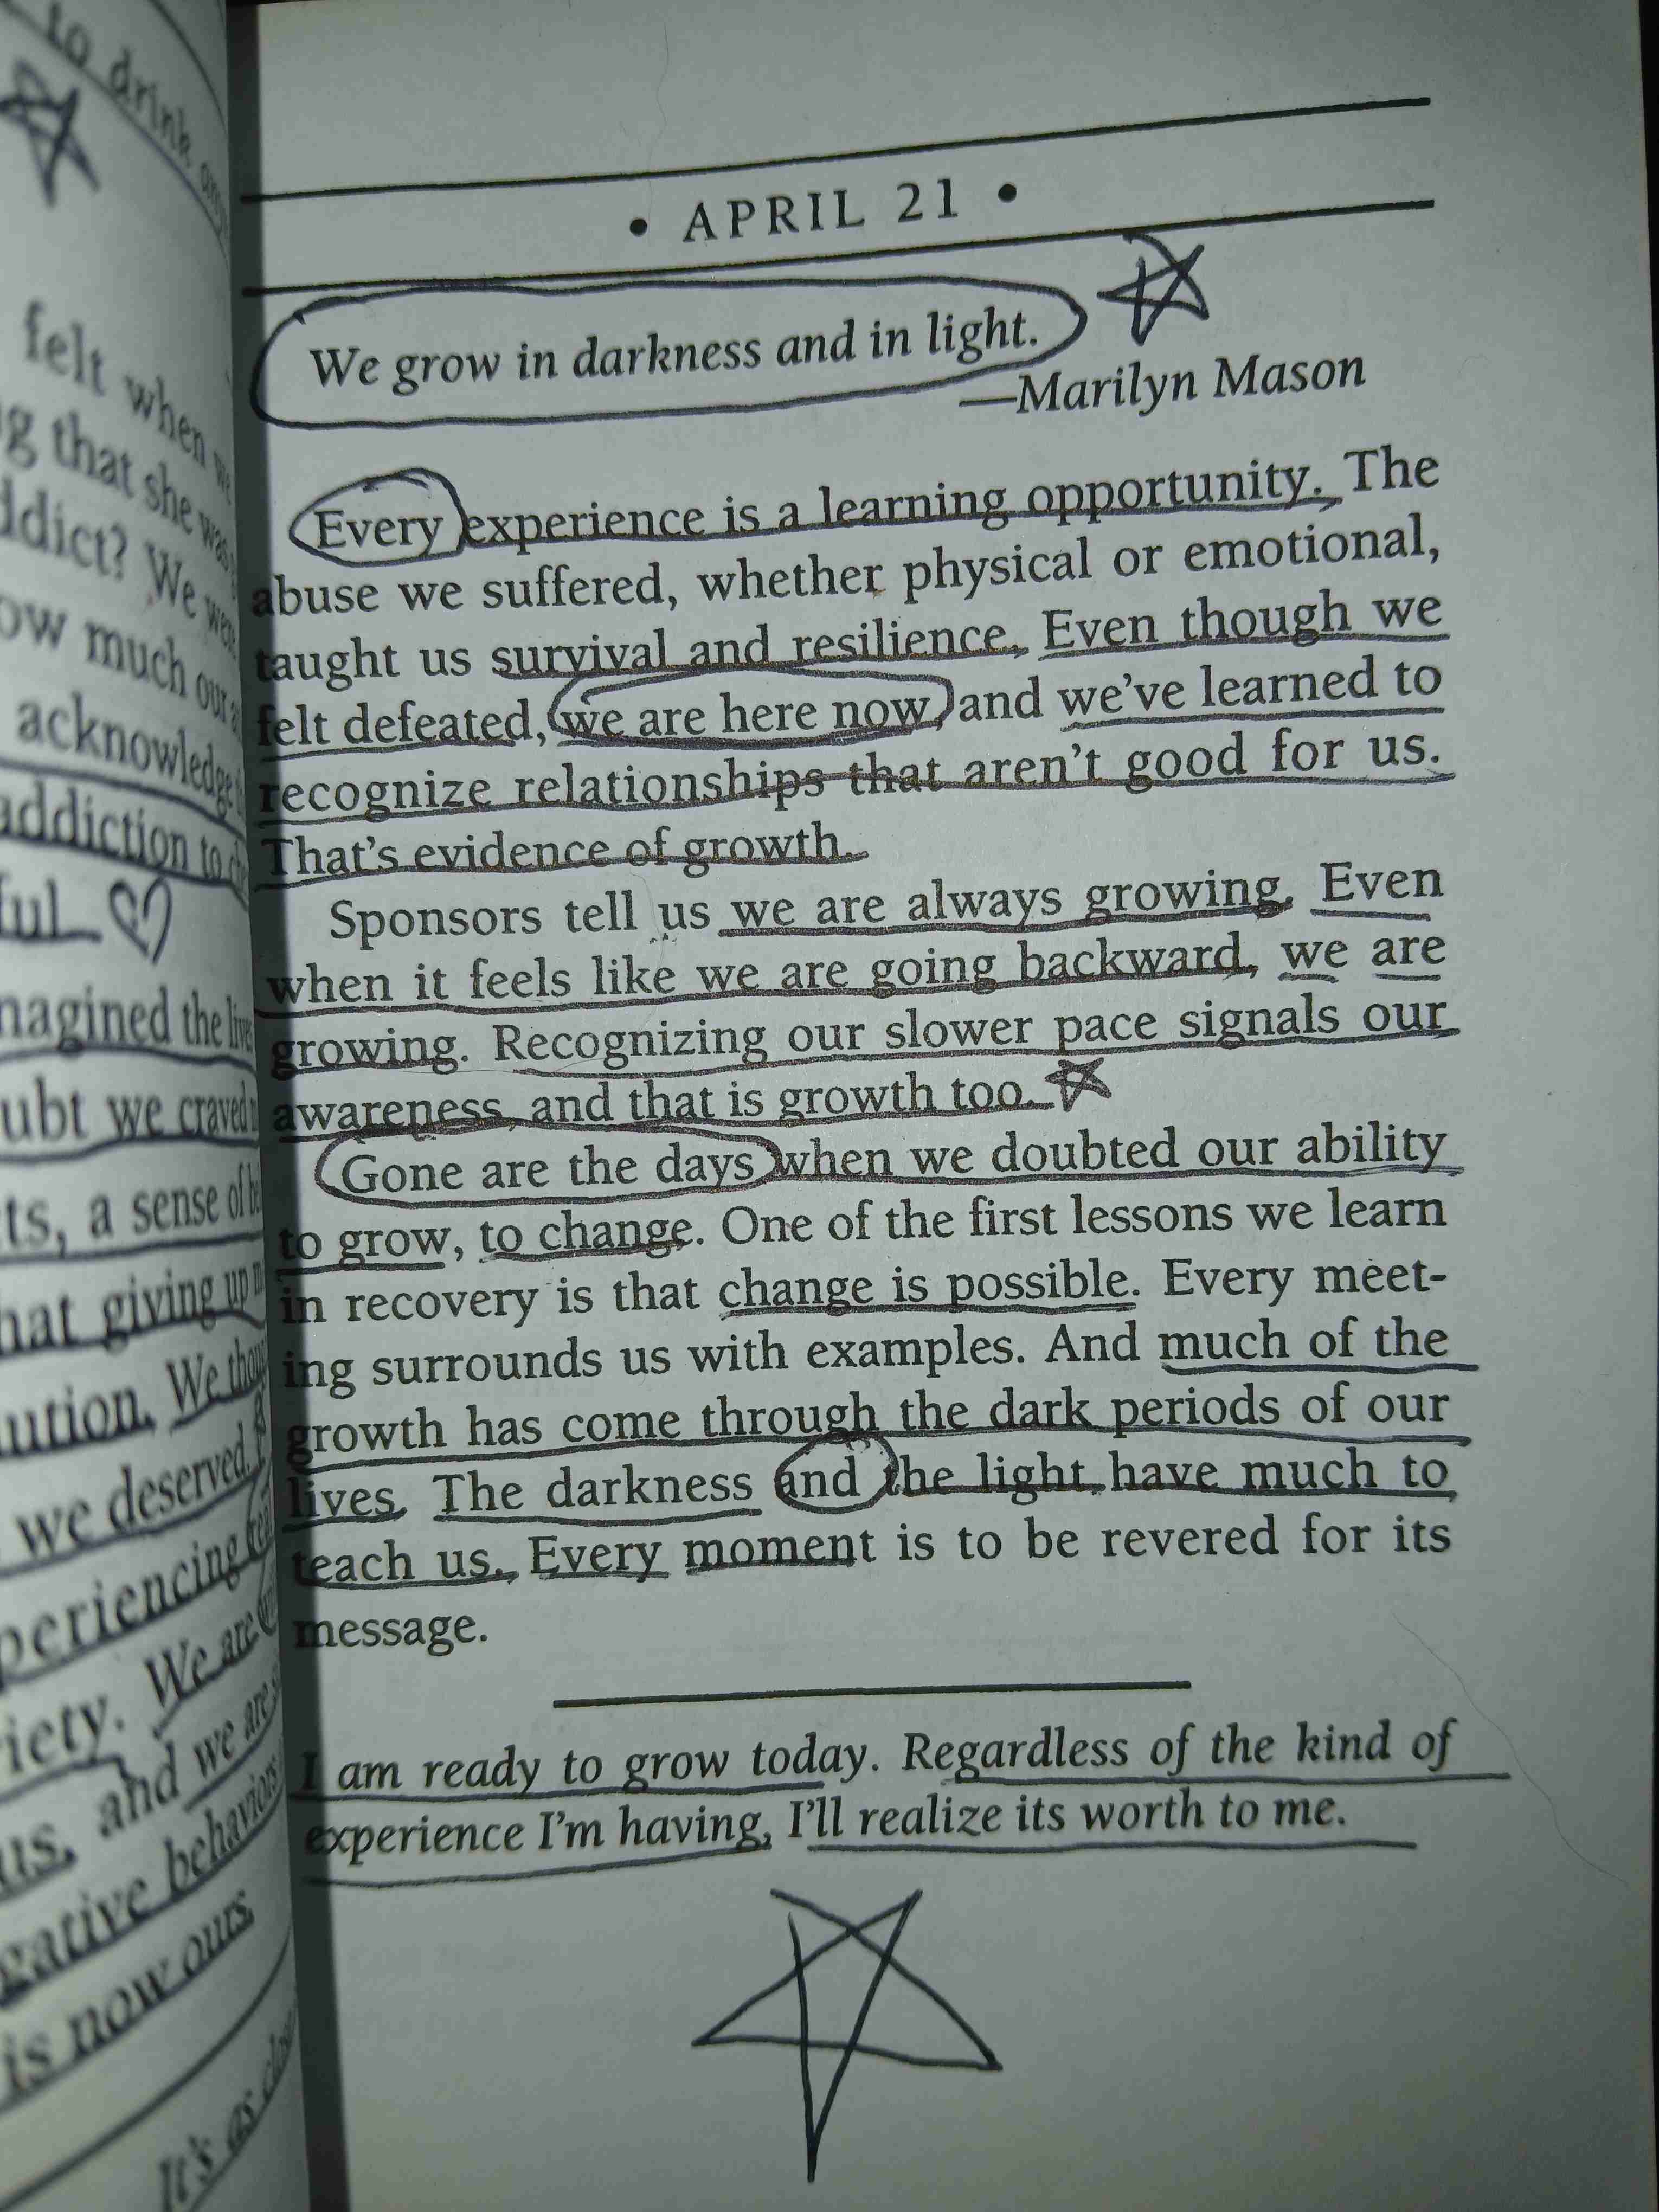 to drink
felt when we
that she was
addict? We were
how much our
acknowledge
addiction to
imagined the lives
we craved
a sense of
that giving up
We thou
we deserved.
experiencing
We are
us, and we are
negative behaviors
is now ours.
It's as
• APRIL 21 •
We grow in darkness and in light.
—Marilyn Mason
Every experience is a learning opportunity. The
abuse we suffered, whether physical or emotional,
taught us survival and resilience. Even though we
felt defeated, we are here now, and we've learned to
recognize relationships that aren't good for us.
That's evidence of growth.
Sponsors tell us we are always growing. Even
when it feels like we are going backward, we are
growing. Recognizing our slower pace signals our
awareness, and that is growth too.
Gone are the days when we doubted our ability
to grow, to change. One of the first lessons we learn
in recovery is that change is possible. Every meet-
ing surrounds us with examples. And much of the
growth has come through the dark periods of our
lives. The darkness and the light have much to
teach us. Every moment is to be revered for its
message.
I am ready to grow today. Regardless of the kind of
experience I'm having, I'll realize its worth to me.